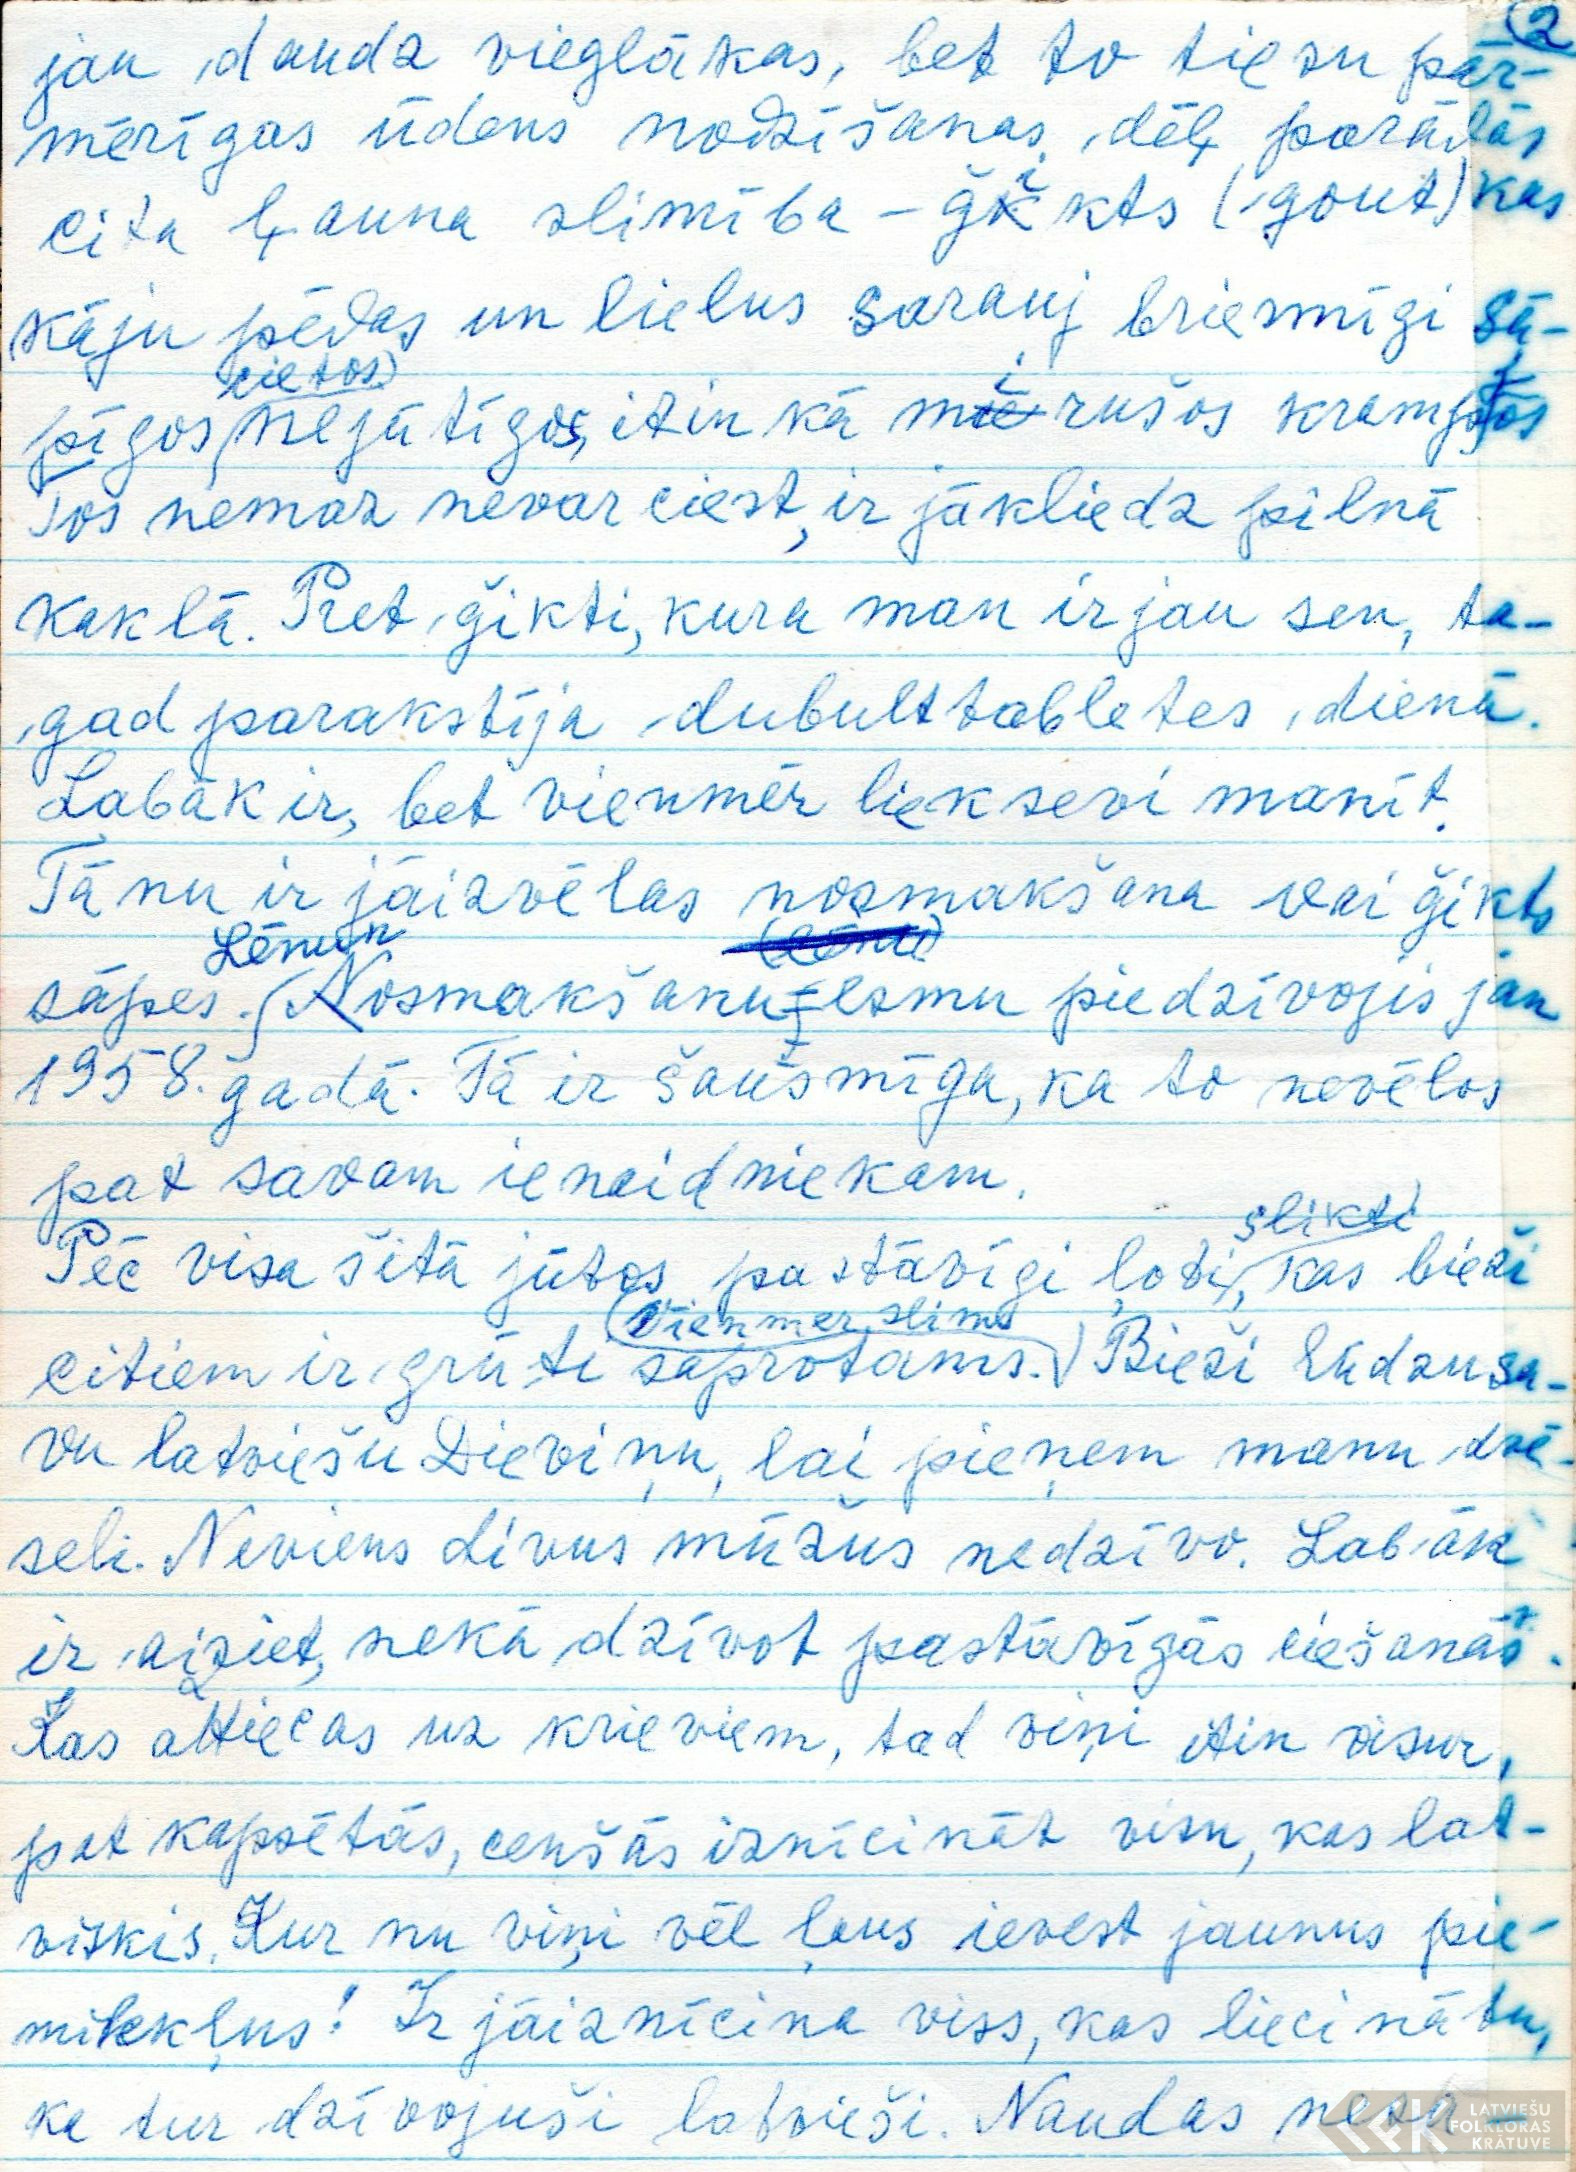 2
jau daudz vieglākas, bet to tiesu pār-
mērīgas ūdens nodzīšanas dēļ parādās
cita ļauna slimība – ģikts (gout) kas
kāju pēdas un lielus sarauj briesmīgi sā-
cietos
pīgos nejūtīgos, itin kā mirušos krampjos
Tos nemaz nevar ciest, ir jākliedz pilnā
kaklā. Pret ģikti, kura man ir jau sen, ta-
gad parakstīja dubulttabletes dienā.
Labāk ir, bet vienmēr liek sevi manīt.
Tā nu ir jāizvēlas nosmakšana vai ģikts
Lēnu
sāpes. Nosmakšanu esmu piedzīvojis jau
1958. gadā. Tā ir šausmīga, ka to nevēlos
pat savam ienaidniekam.
slikti
Pēc visa šitā jūtos pastāvīgi ļoti, kas bieži
Vienmer slims
citiem ir grūti saprotams. Bieži lūdzu sa-
vu latviešu Dieviņu, lai pieņem manu dvē-
seli. Neviens divus mūžus nedzīvo. Labāk
ir aiziet, nekā dzīvot pastāvīgās ciešanās.
Kas attiecas uz krieviem, tad viņi itin visur,
pat kapsētās, cenšās iznīcināt visu, kas lat-
viskis. Kur nu viņi vēl ļaus ievest jaunus pie-
minekļus! Ir jāiznīcina viss, kas liecinātu,
ka tur dzīvojuši latvieši. Naudas nesa-
LATVIEŠU
FOLKLORAS
KRĀTUVE